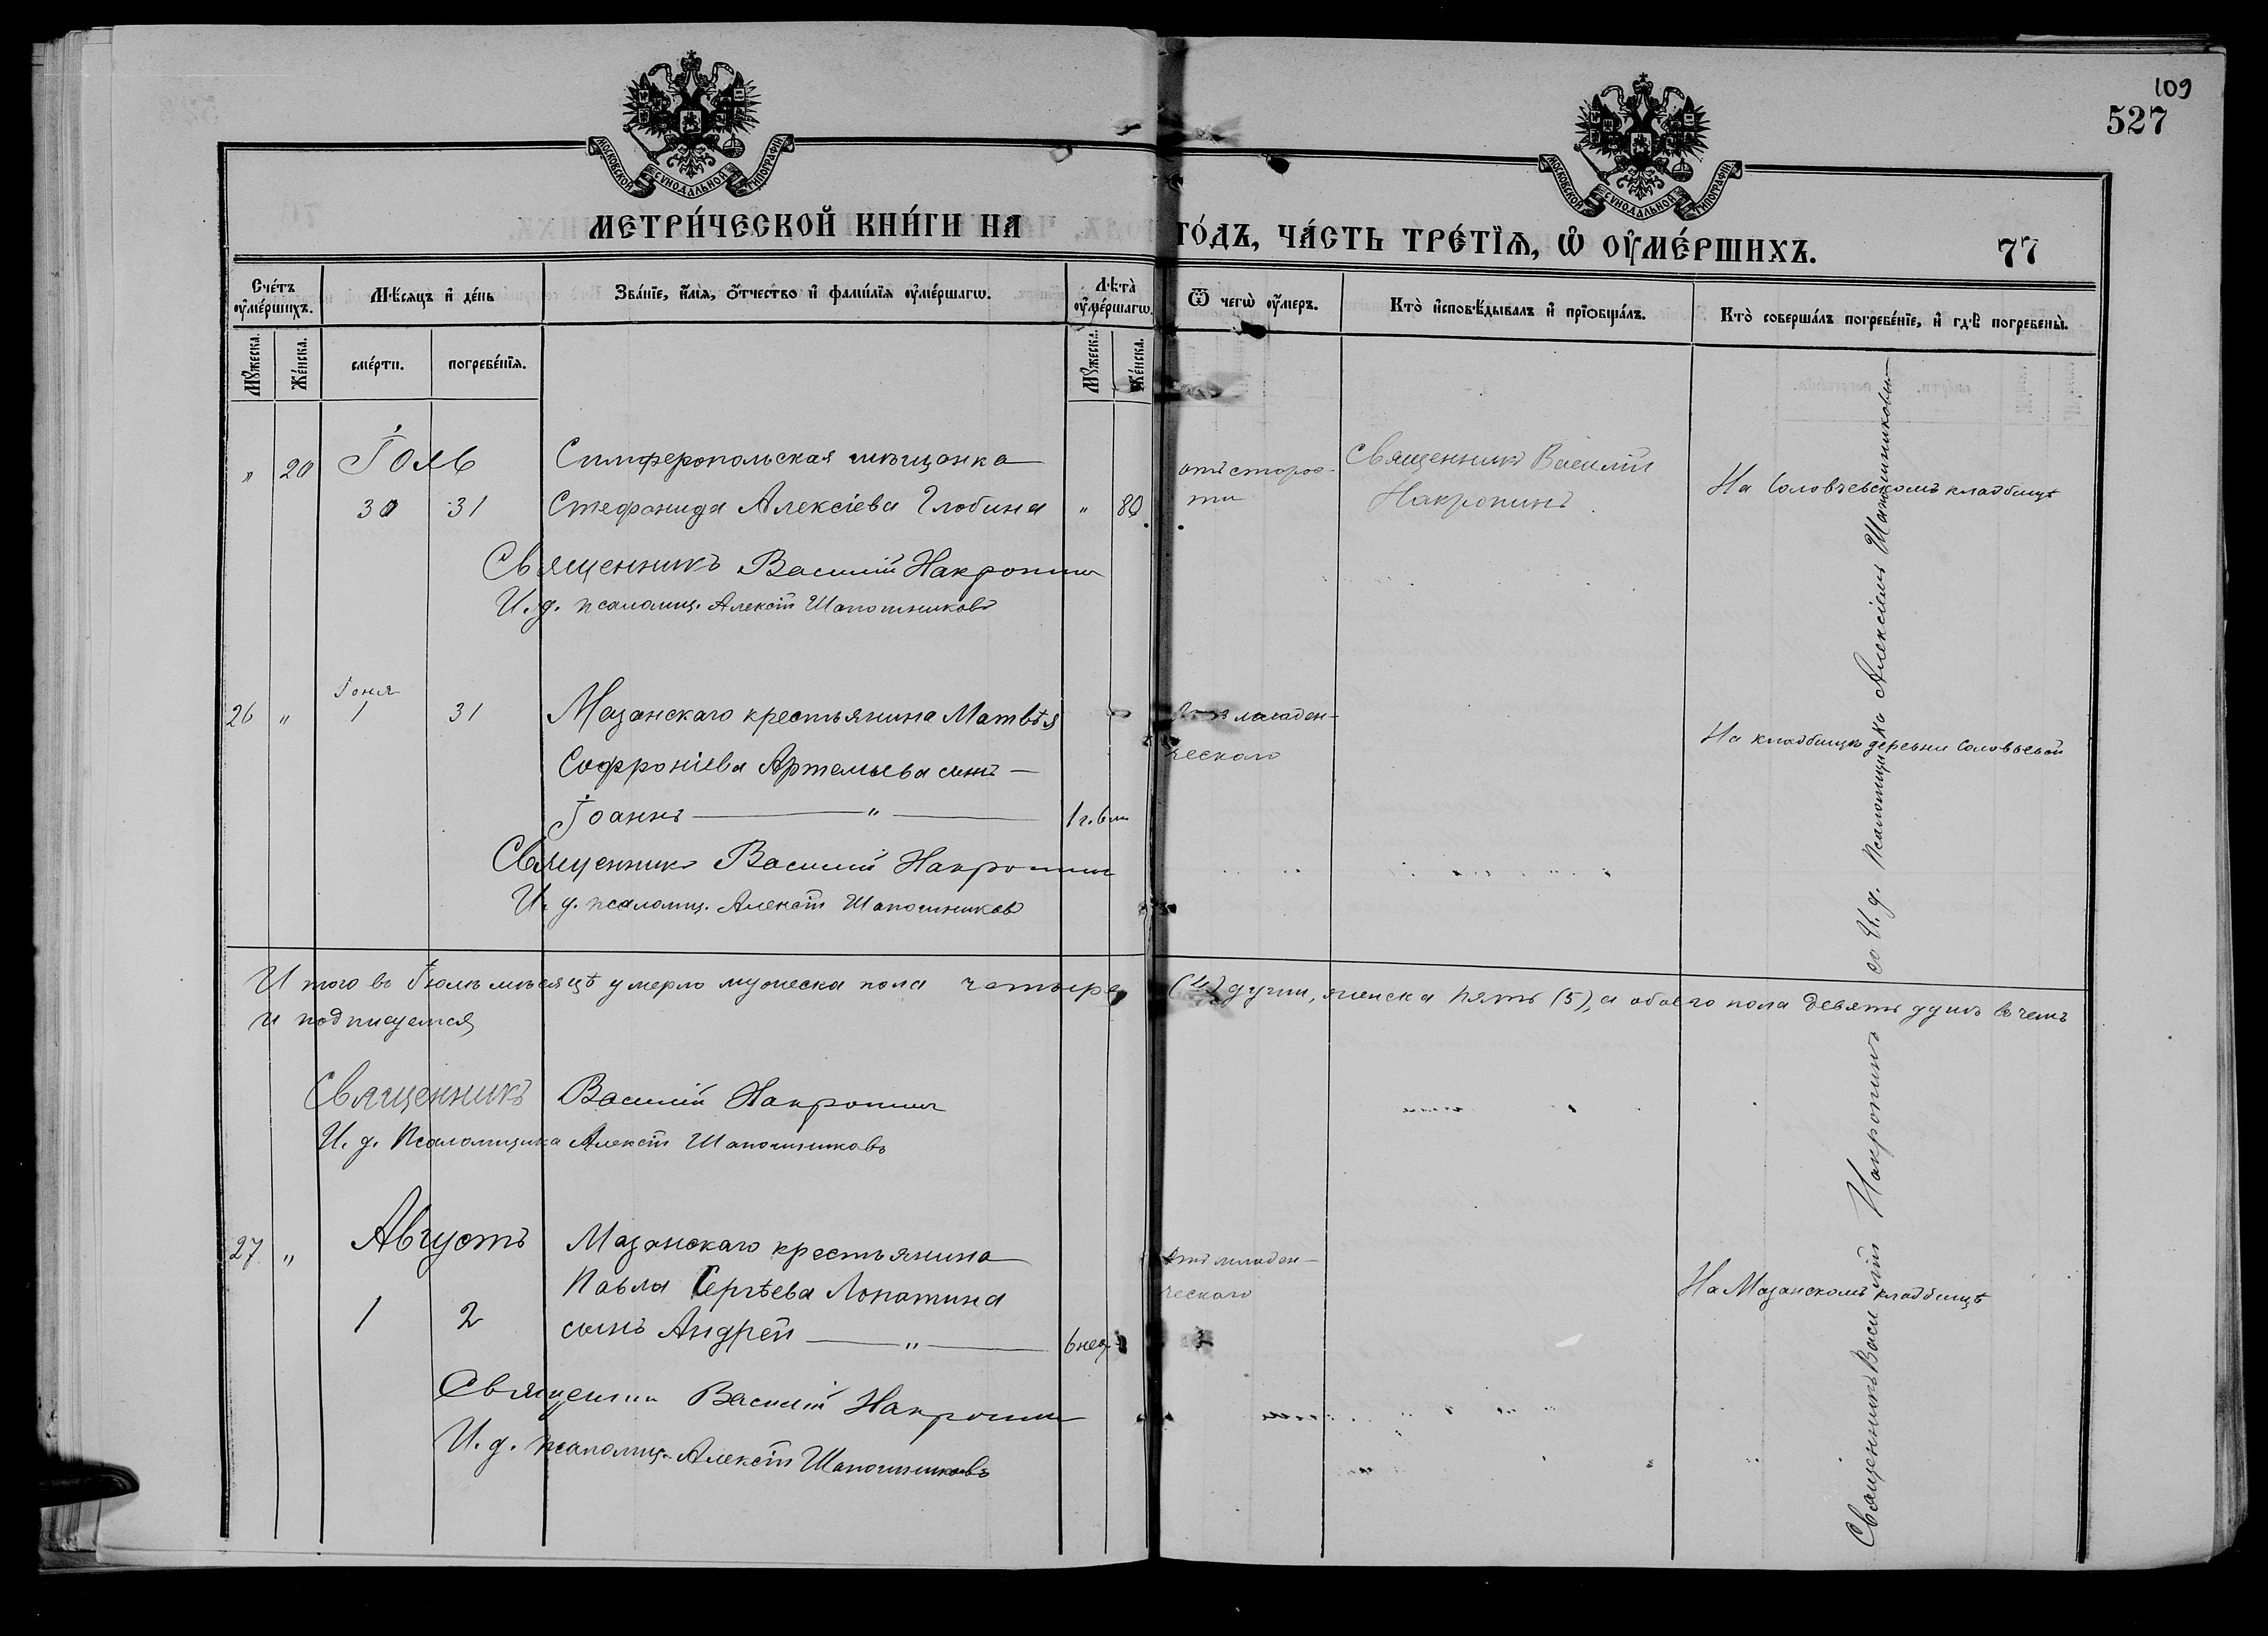 109
527
МОСКОВСКОЙ СѴНОДАЛЬНОЙ ТИПОГРАФІИ
МОСКОВСКОЙ СѴНОДАЛЬНОЙ ТИПОГРАФІИ
МЕТРИ́ЧЕСКОЙ КНИ́ГИ НА
ГО́ДЪ, ЧА́СТЬ ТРЕ́ТЇѦ, Ѡ҆ ОУ҆МЕ́РШИХЪ.
77
Сче́тъ оу҆ме́ршихъ.
Мѣ́сѧцъ и҆ де́нь
Зва́нїе, и҆́мѧ, ѻ҆́тчество и҆ фами́лїѧ оу҆ме́ршагѡ.
Лѣ̀та оу҆ме́ршагѡ.
Ѿ чегѡ̀ оу҆́меръ.
Кто̀ и҆сповѣ́дывалъ и҆ прїѻбща́лъ.
Кто̀ соверша́лъ погребе́нїе, и҆ гдѣ̀ погребены̀.
Мꙋ́жеска.
Же́нска.
сме́рти.
погребе́нїѧ.
Мꙋ́жеска.
Же́нска.
" 20 Іюль Симферопольская мѣщанка
30 31 Стефанида Алексіева Глобина " 80
отъ старос-
ти
Священникъ Василій
Накропинъ
На Соловьевскомъ кладбищѣ
Священникъ Василій Накропинъ
И. д. псаломщ. Алексѣй Шапошниковъ
26 " 1 31 Мазанскаго крестьянина Матвѣя
Софроніева Артемьева сынъ —
Іоаннъ — " — 1 г. 6 м
Отъ младен-
ческаго
На кладбищѣ деревни Соловьевой
Священникъ Василій Накропинъ
И. д. псаломщ. Алексѣй Шапошниковъ
Итого въ Іюлѣ мѣсяцѣ умерло мужеска пола четыре (4) души, женска пять (5), а обоего пола девять душъ въ чемъ
и подписуемся
Священникъ Василій Накропинъ
И. д. Псаломщика Алексѣй Шапошниковъ
27 " Августъ Мазанскаго крестьянина
Павла Сергѣева Лопатина
1 2 сынъ Андрей — " — 6 нед.
Отъ младен-
ческаго
На Мазанскомъ кладбищѣ
Священникъ Василій Накропинъ
И. д. псаломщ. Алексѣй Шапошниковъ
Священникъ Василій Накропинъ со И. д. псаломщика Алексіемъ Шапошниковымъ